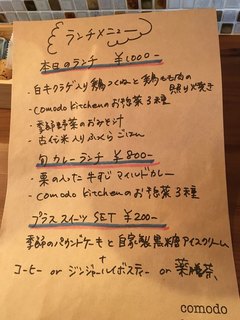 ランチメニュー
本日のランチ ¥1000-
・白キクラゲ入り鶏つくねと鶏もも肉の
照り焼き
・comodo kitchenのお惣菜3種
・季節野菜のおみそ汁
・古代米入りふっくらごはん
旬カレーランチ ¥800-
・栗の入った牛すじマイルドカレー
・comodo kitchenのお惣菜3種
プラススイーツSET ¥200-
季節のパウンドケーキと自家製黒糖アイスクリーム
+
コーヒー or ジンジャールイボスティー or 薬膳茶
comodo